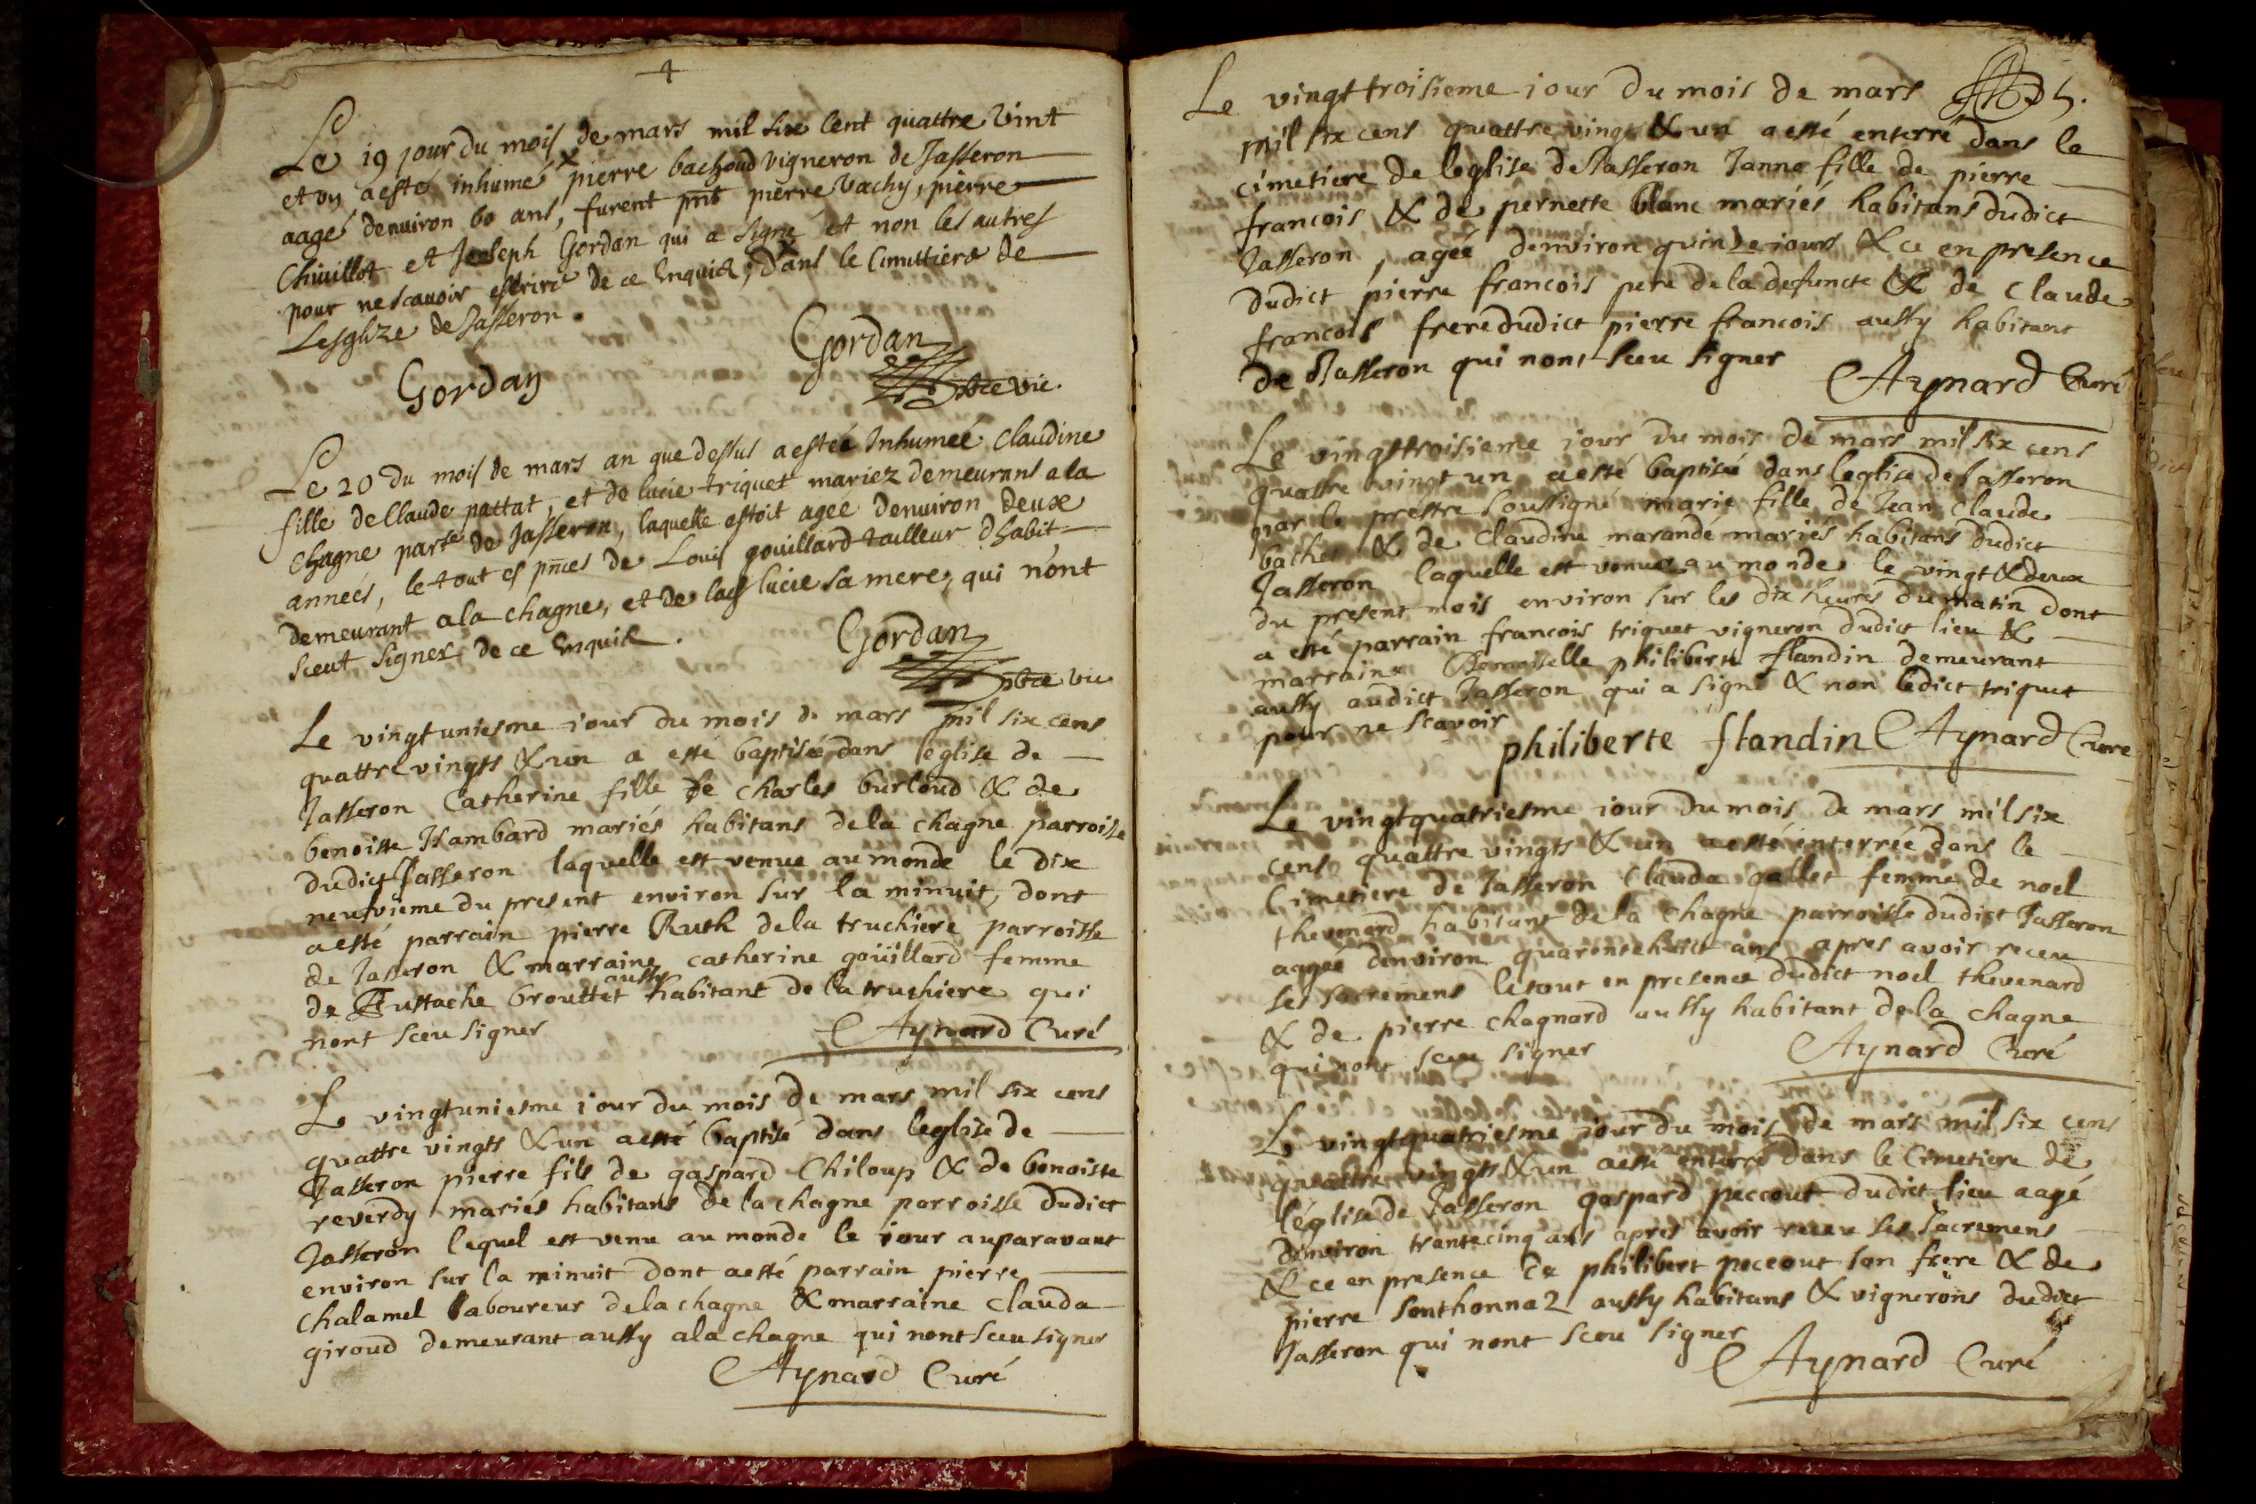 4
Le 19 jour du mois de mars mil six cent quattre vint
et un a esté inhumé pierre bachoud vigneron de Jasseron
aagé denuiron 60 ans, furent pnts pierre vachy, pierre
Chiuillot et Joseph Gordan qui a signé et non les autres
pour ne scauoir escrire de ce Enquis, dans le Cimittiere de
Lesglize de Jasseron.
Gordan
Gordan ptre vic.
Le 20 du mois de mars an que dessus a estéé Inhumeé Claudine
fille de Claude pattat, et de lucie triquet mariez demeurans a la
Chagne parse de Jasseron, laquelle estoit ageé denuiron deux
anneés, le tout es pnces de Louis gouillard tailleur d'habit
demeurant a la chagne, et de lad lucie sa mere, qui nont
sceut signer de ce Enquis.
Gordan ptre vic
Le vingtuniesme iour du mois de mars mil six cens
quattre vingts & un a esté baptisée dans leglise de
Jasseron Catherine fille de Charles burloud & de
benoiste Hambard mariés habitans de la chagne parroisse
dudict Jasseron laquelle est venue au monde le dix
neufvieme du present environ sur la minuit, dont
a esté parrain pierre Ruth de la truchiere parroisse
de Jasseron & marraine catherine goüillard femme
de Eustache brouttet aussy habitant de la truchiere qui
nont sceu signer
Aynard Curé
Le vingtuniesme iour du mois de mars mil six cens
quattre vingts & un a esté baptisé dans leglise de
Jasseron pierre fils de gaspard Chiloup & de benoiste
reverdy mariés habitans de la chagne parroisse dudict
Jasseron lequel est venu au monde le iour auparavant
environ sur la minuit dont a esté parrain pierre
chalamel laboureur de la chagne & marraine clauda
giroud demeurant aussy a la chagne qui nont sceu signer
Aynard Curé
Le vingttroisieme iour du mois de mars 5.
mil six cens quattre vingts & un a esté enterré dans le
cimetiere de leglise de Jasseron Janne fille de pierre
francois & de pernette blanc mariés habitans dudict
Jasseron, ageé denviron quinze iours & ce en presence
dudict pierre francois pere de la defuncte & de claude
francois frere dudict pierre francois aussy habitant
de Jasseron qui nont sceu signer
Aynard Curé
Le vingttroisieme iour du mois de mars mil six cens
quattre vingt un a esté baptisée dans leglise de Jasseron
par le prestre soussigné marie fille de Jean Claude
bachet & de Claudine marandé mariés habitans dudict
Jasseron laquelle est venue au monde le vingt & deux
du present mois environ sur les dix heures du matin dont
a esté parrain francois triquet vigneron dudict lieu &
marraine Demoiselle philiberte flandin demeurant
aussy audict Jasseron qui a signé & non ledict triquet
pour ne scavoir
philiberte flandin Aynard Curé
Le vingtquatriesme iour du mois de mars mil six
cens quattre vingts & un a esté enterrée dans le
Cimetiere de Jasseron Clauda gallet femme de noel
thevenard habitant de la chagne parroisse dudict Jasseron
aagée denviron quarantehuict ans apres avoir receu
ses sacremens le tout en presence dudict noel thevenard
& de pierre chagnard aussy habitant de la chagne
qui nont sceu signer
Aynard Curé
Le vingtquatriesme iour du mois de mars mil six cens
quattre vingts & un a esté enterré dans le Cimetiere de
léglise de Jasseron gaspard peccout dudict lieu aagé
denviron trentecinq ans apres avoir receu ses sacremens
& ce en presence de philibert peccout son frere & de
pierre sonthonnaz aussy habitans & vignerons dudict
Jasseron qui nont sceu signer
Aynard Curé